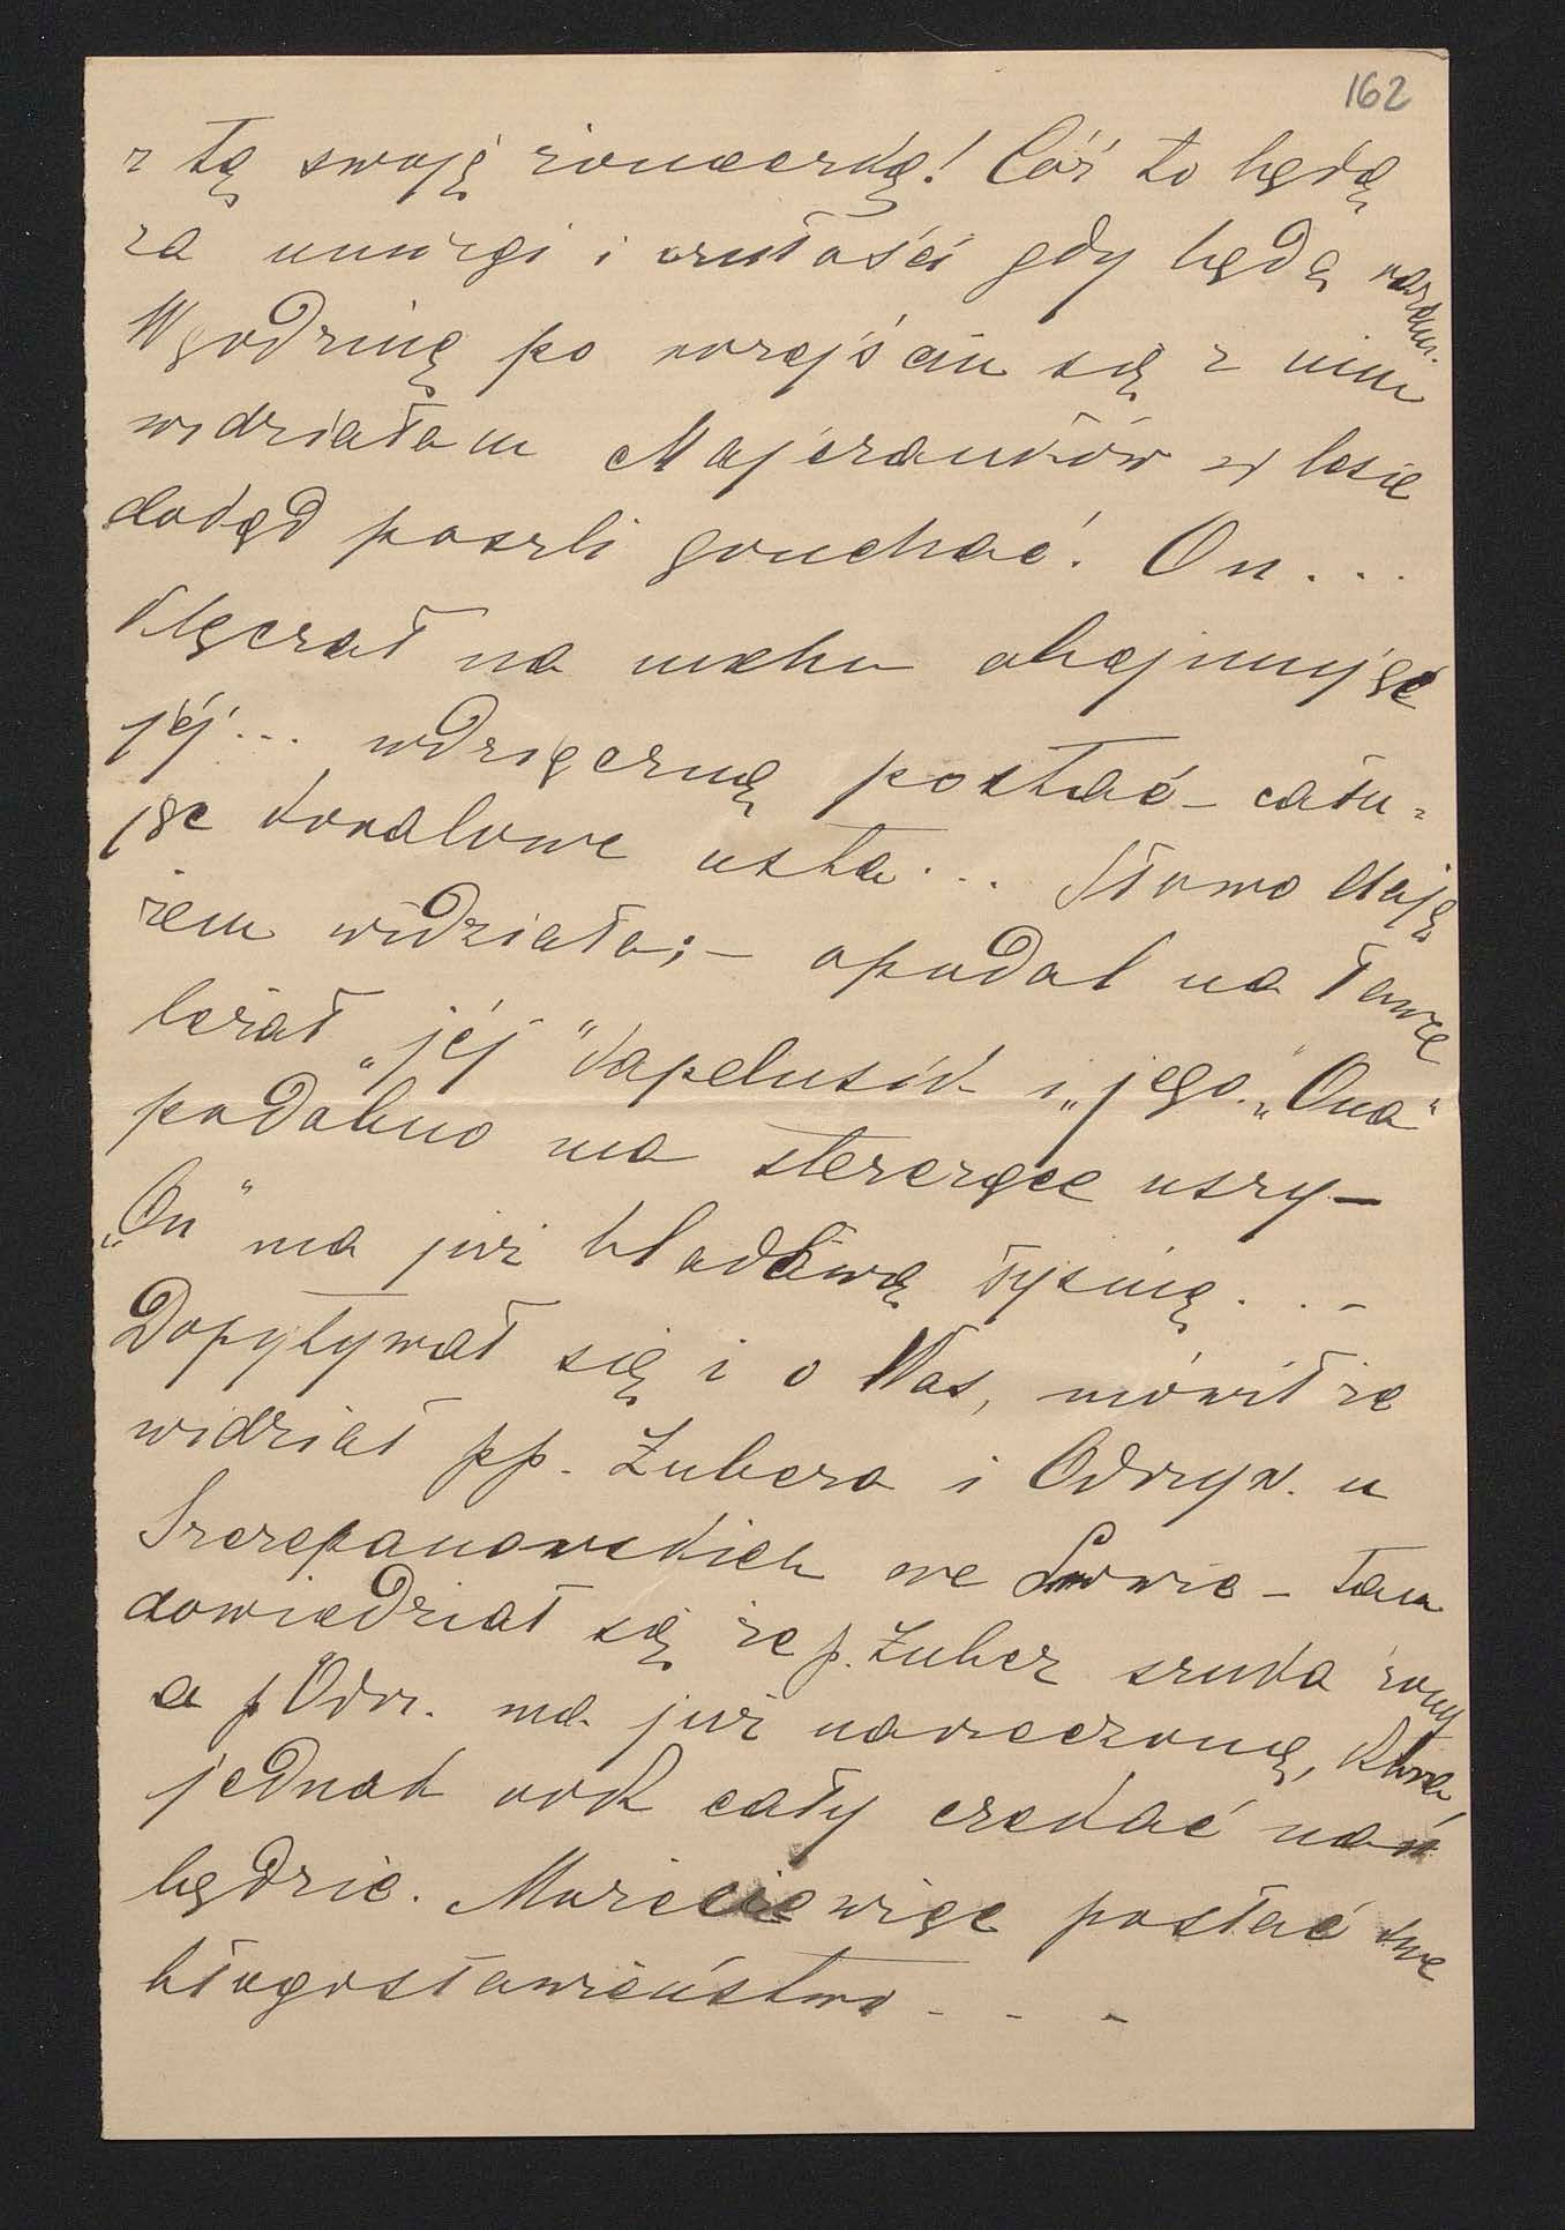 162
z tą swoją żoneczką! Cóż to będą
za umizgi i czułości gdy będą razem.
W godzinę po rozejściu się z nim
widziałam Majeranków w lesie
dokąd poszli gruchać. On...
klęczał na mchu obejmując
jéj... wdzięczną postać – cału=
jąc koralowe usta... Słowo daję
żem widziała; – opodal na ławce
leżał „jéj" kapelusik i „jego". „Ona"
podobno ma sterczące uszy –
„On" ma już bladawą łysinę. . –
Dopytywał się i o Was, mówił że
widział pp. Zubera i Odrzyw. u
Szczepanowskich we Lwowie – tam
dowiedział się że p. Zuber szuka żony
a p Odrz. ma już narzeczoną, która
jednak rok cały czekać nań
będzie. Możecie więc posłać swe
błogosławieństwo - - -